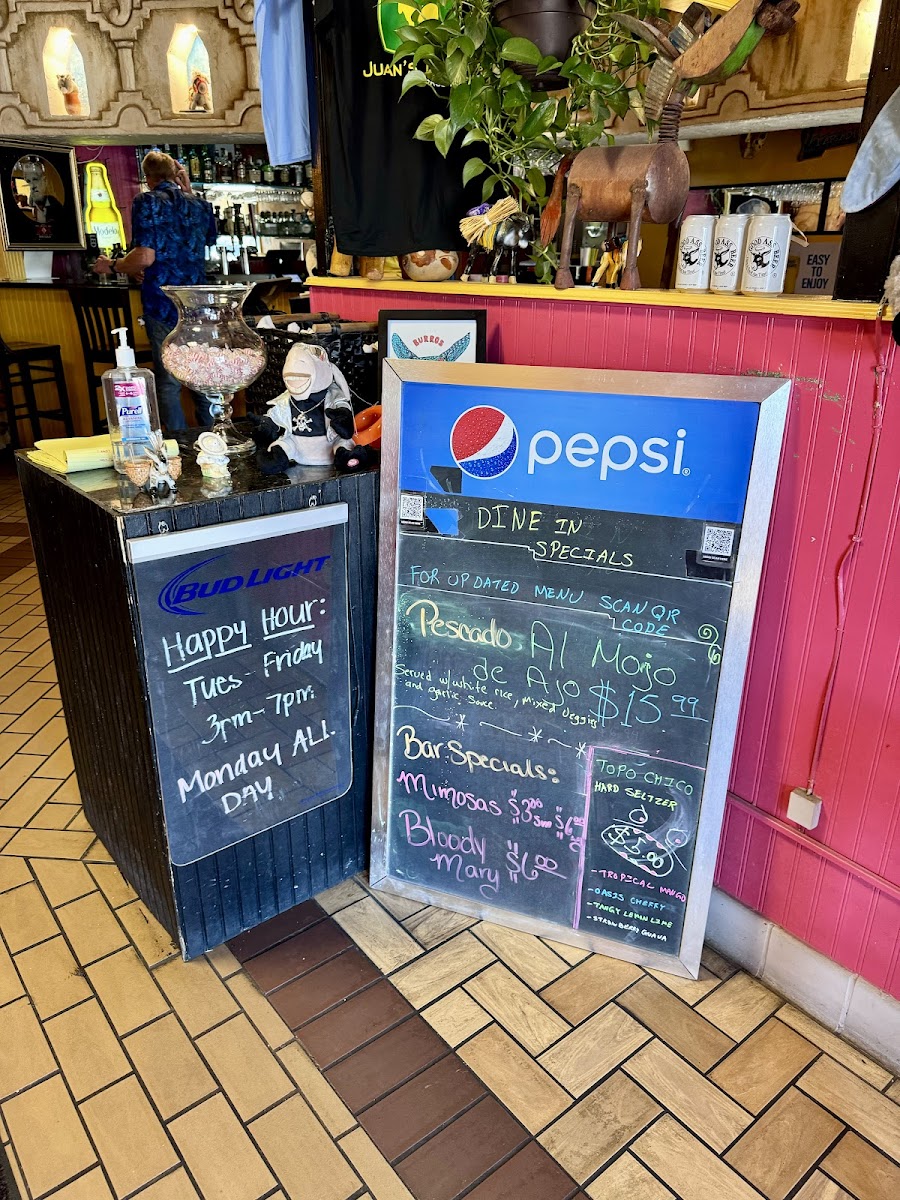 JUAN'S
Modelo
GOOD ASS BEER
GOOD ASS BEER
GOOD ASS BEER
EASY
TO
ENJOY
BURROS
Purell
pepsi
DINE IN
SPECIALS
FOR UPDATED MENU SCAN QR
CODE
Pescado Al Mojo
de Ajo $15.99
Served w/ white rice, mixed veggies
and garlic sauce
Bar Specials:
Mimosas $3.00
$6.00
Bloody
Mary $6.00
TOPO CHICO
HARD SELTZER
$5.00
- TROPICAL MANGO
- OASIS CHERRY
- TANGY LEMON LIME
- STRAWBERRY GUAVA
BUD LIGHT
Happy Hour:
Tues - Friday
3pm - 7pm
Monday ALL
DAY